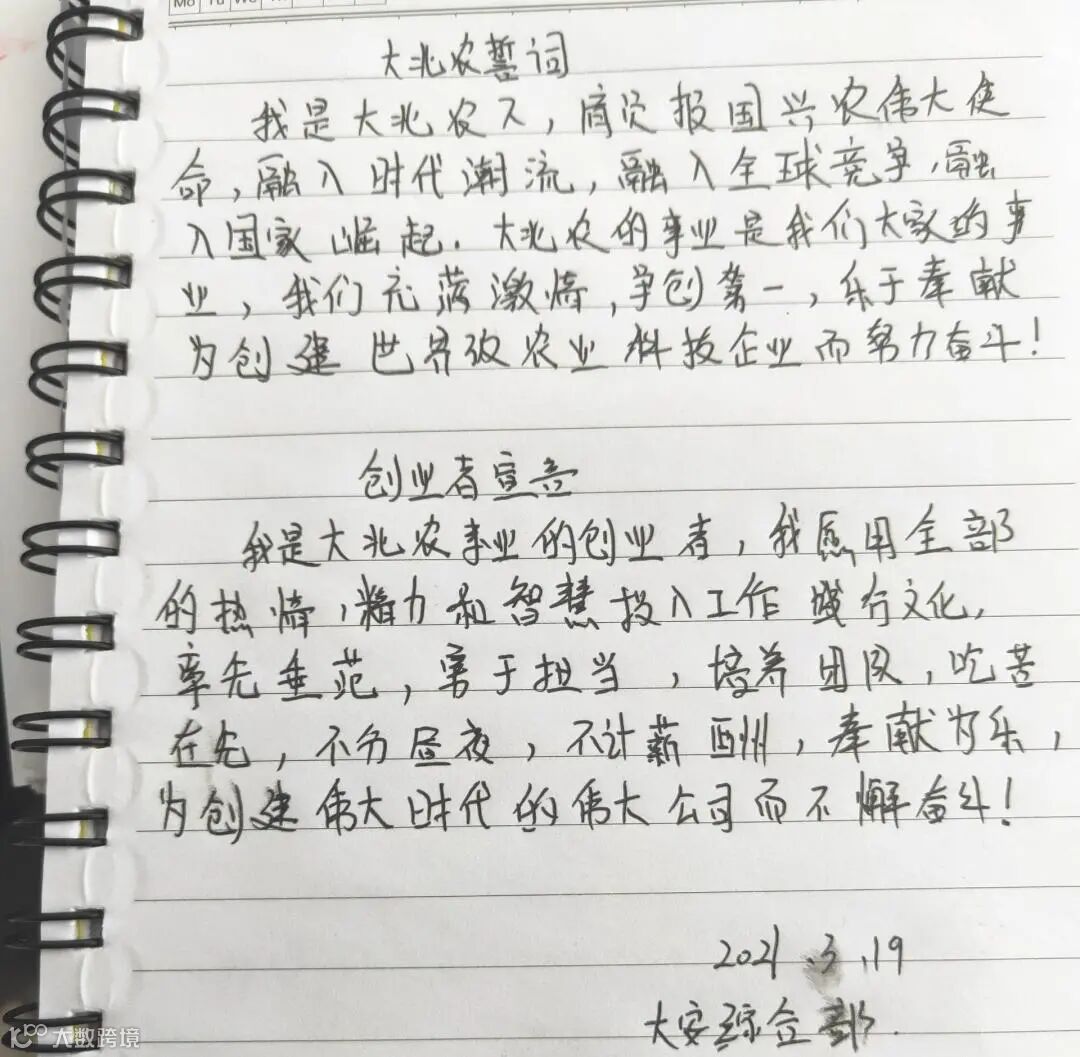 Mo Tu We
大北农誓词
我是大北农人，肩负报国兴农伟大使
命，融入时代潮流，融入全球竞争，融
入国家崛起．大北农的事业是我们大家的事
业，我们充满激情，争创第一，乐于奉献
为创建世界级农业科技企业而努力奋斗！
创业者宣言
我是大北农事业的创业者，我愿用全部
的热情，精力和智慧投入工作 践行文化，
率先垂范，勇于担当，培养团队，吃苦
在先，不分昼夜，不计薪酬，奉献为乐，
为创建伟大时代的伟大公司而不懈奋斗！
2021.3.19
大安综合部．
大数跨境